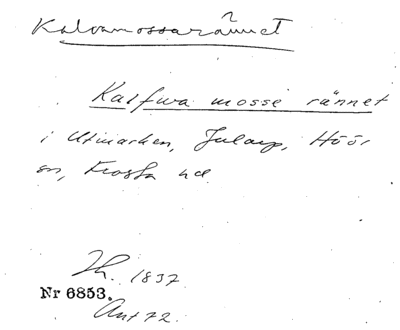 Kalvamossarännet
Kalfwa mosse rännet
i Utmarken, Jularp, Höör
sn, Frosta hd
Lh. 1837
Nr 6853.
Ant 72.